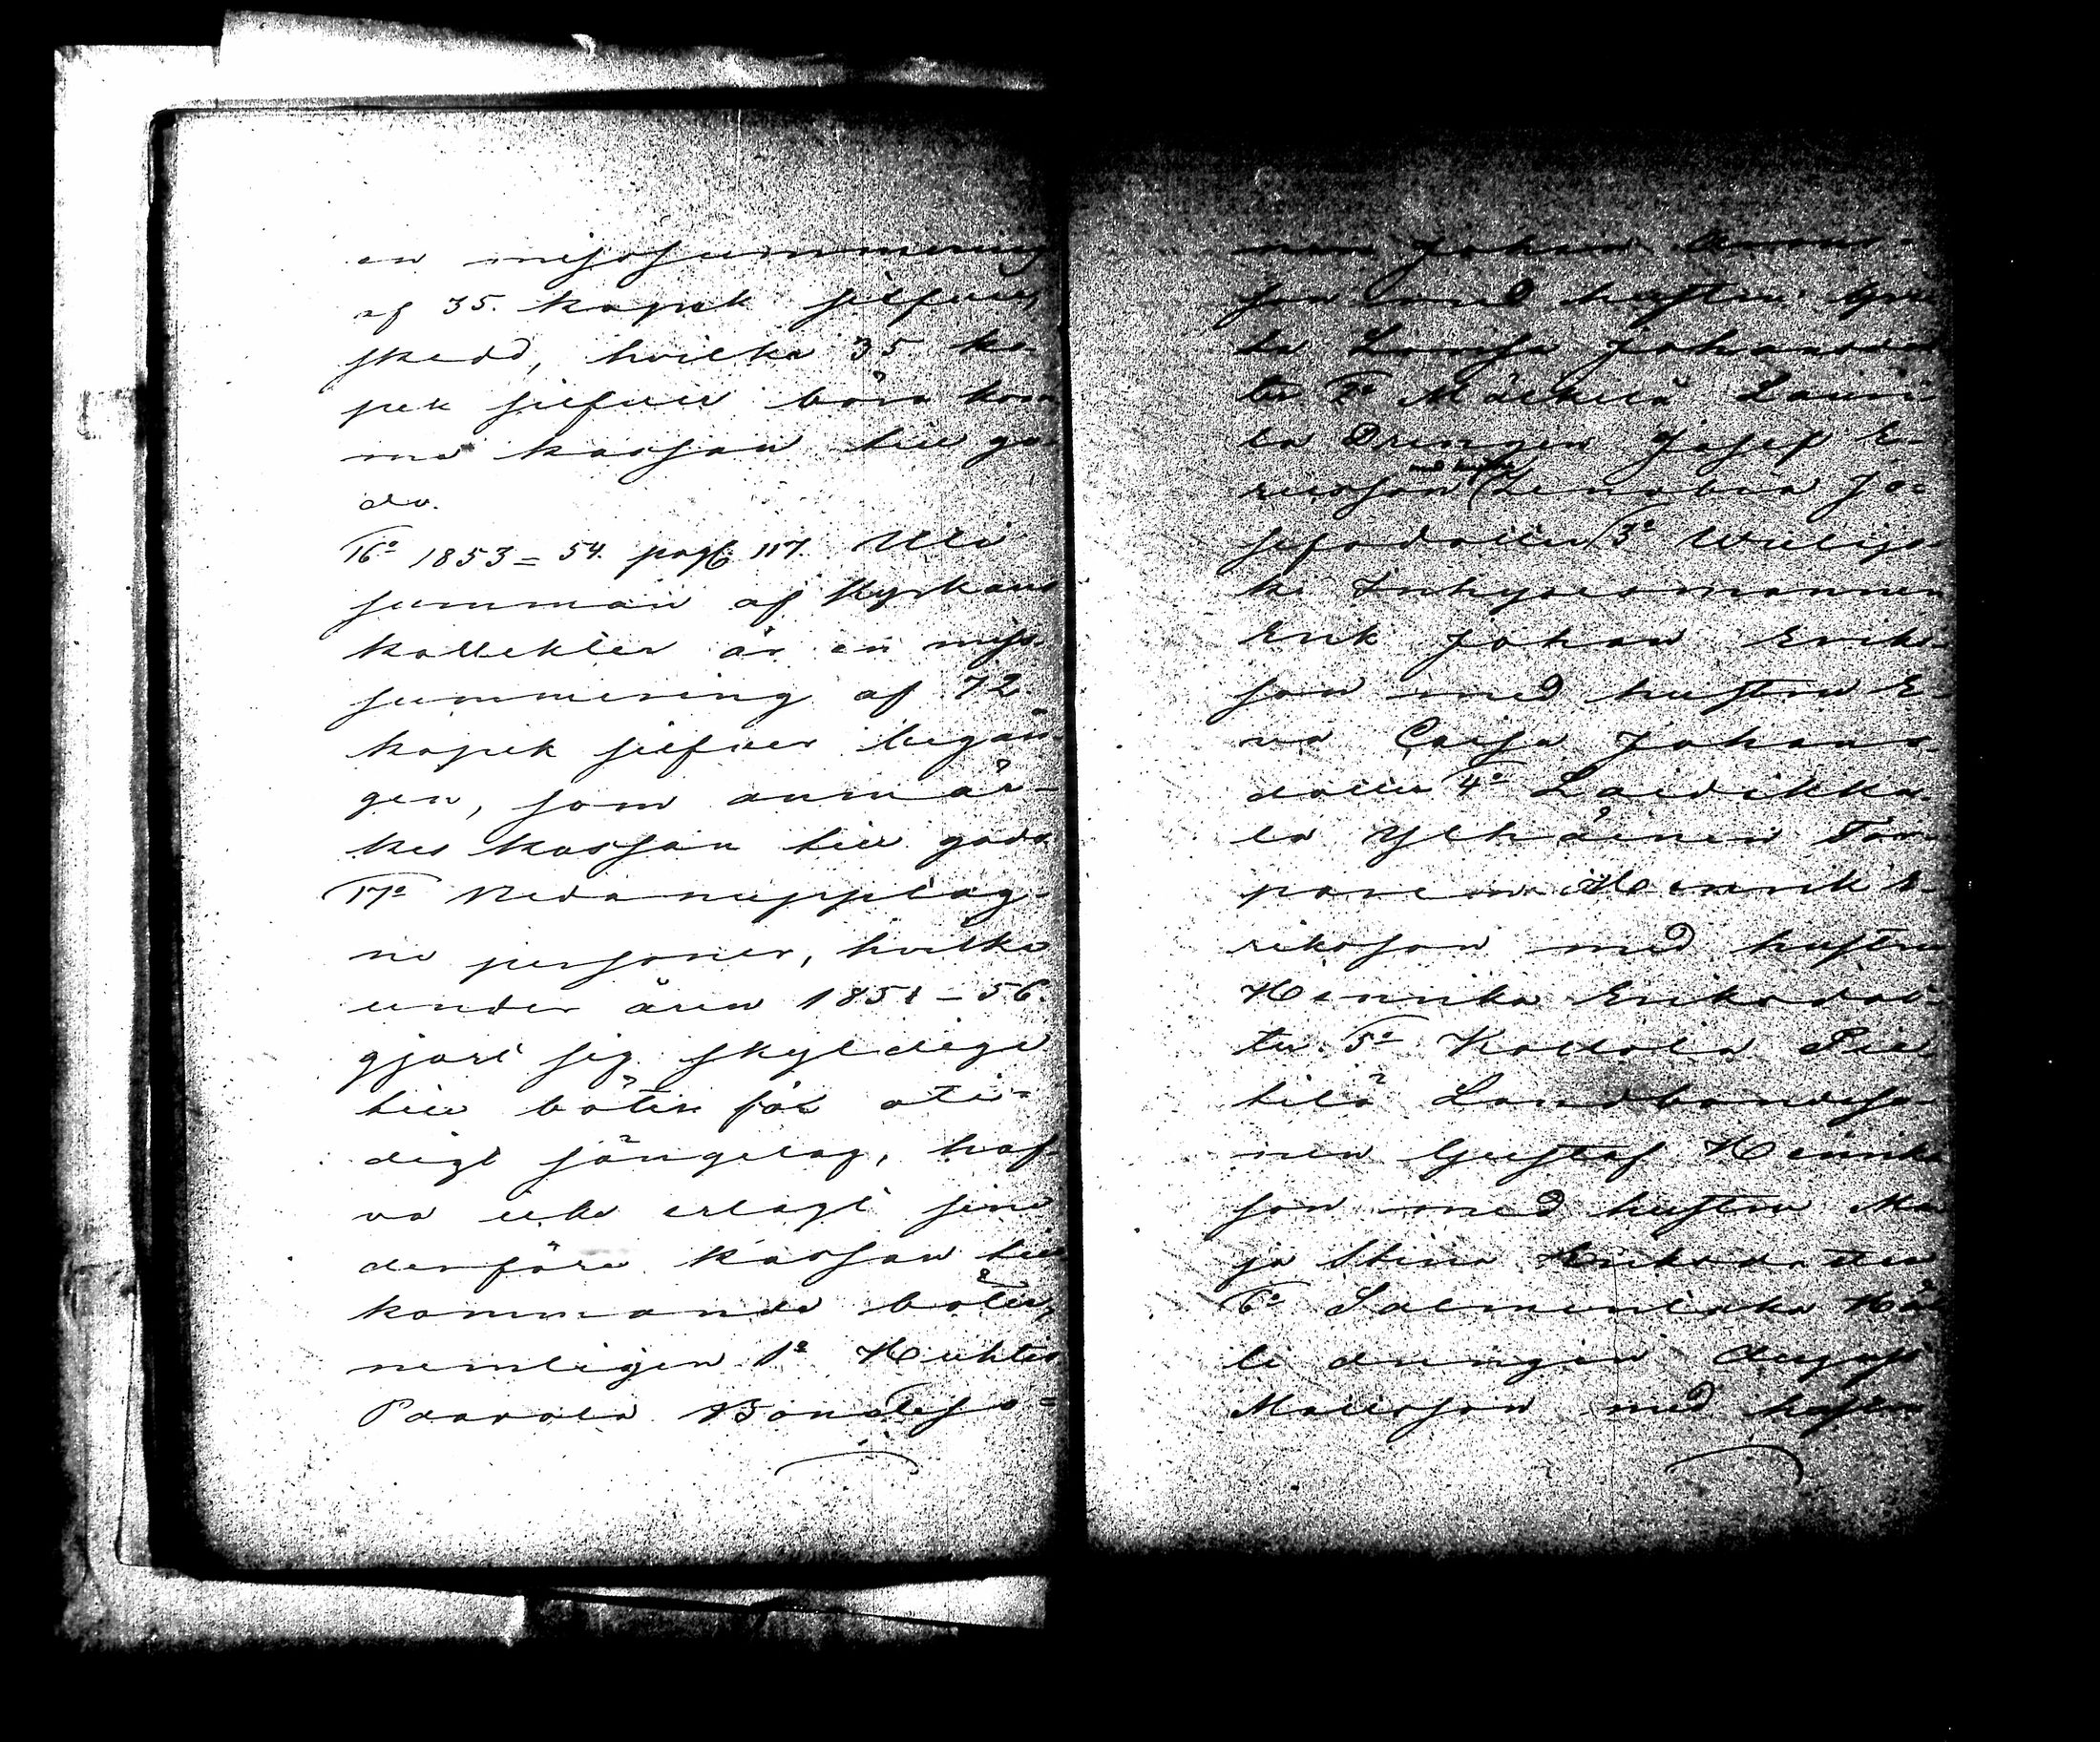 en misssummering
af 35. kopek silfver,
skedd, hvilka 35 ko-
pek silfver böra kom-
ma kassan till go-
do.
16o 1853=54. pag: 117. Uti
summan af Kyrkans
kollekter är en miss-
summering af 72
kopek silfver begån-
gen, som anmär-
kes kassan till godo
17o Nedanupptag-
ne personer, hvilka
under åren 1851-56.
gjort sig skyldige
till böter för oti-
digt sängelag, haf-
va icke erlagt sina
derföre kassan till
kommande böter,
nemligen 1o Huhtis
Paavola Bondeso-
nen Johan
son med hustru Gre-
ta Lovisa Johansdot-
ter 2o Mälkilä Lauri-
la Drengen Josef E-
ricsson med hustru Lenabea Jo-
sefsdotter 3o
ki Inhysesmannen
Erik Johan Eriks-
son med hustru E-
va Caisa Johans-
dotter 4o Laidikka-
la Ylhäinen Tor-
paren Henrik E-
riksson med hustru
Henrika Eriksdot-
ter 5o Kollola Pie-
tilä Landbondeso-
nen Gustaf Henriks-
son med hustru Ma-
ja Stina Eriksdotter
6o Salmentaka
li drengen August
Matsson med hustru